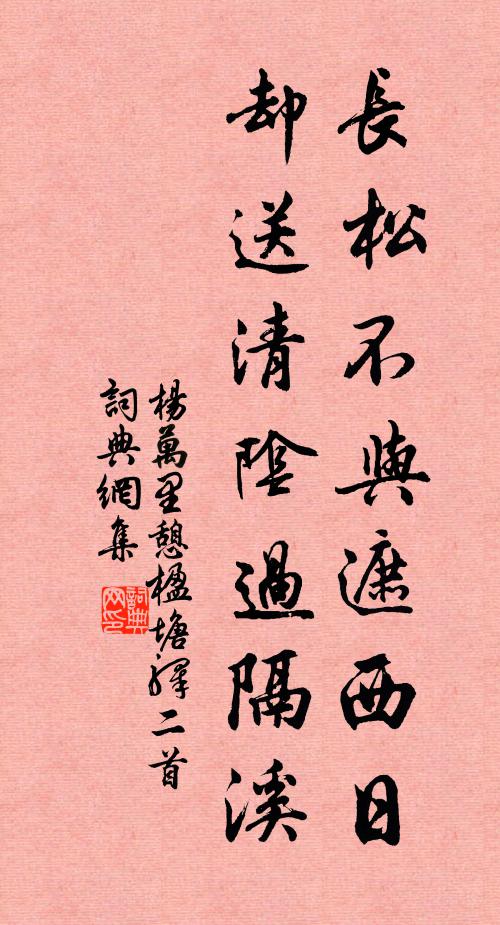 長松不與遮西日
却送清陰過隔溪
楊萬里憩楹塘驛二首
詞典網集
詞典网印